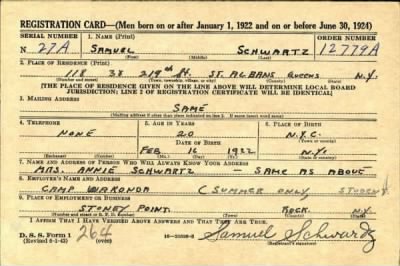 REGISTRATION CARD—(Men born on or after January 1, 1922 and on or before June 30, 1924)
SERIAL NUMBER 1. NAME (Print) ORDER NUMBER
N 27A SAMUEL SCHWARTZ 12779A
(First) (Middle) (Last)
2. PLACE OF RESIDENCE (Print)
118 38 219th St. ST. ALBANS QUEENS N.Y.
(Number and street) (Town, township, village, or city) (County) (State)
[THE PLACE OF RESIDENCE GIVEN ON THE LINE ABOVE WILL DETERMINE LOCAL BOARD
JURISDICTION; LINE 2 OF REGISTRATION CERTIFICATE WILL BE IDENTICAL]
3. MAILING ADDRESS
SAME
(Mailing address if other than place indicated on line 2. If same insert word same)
4. TELEPHONE 5. AGE IN YEARS 6. PLACE OF BIRTH
NONE 20 N.Y.C.
DATE OF BIRTH (Town or county)
FEB 16 1922 N.Y.
(Exchange) (Number) (Mo.) (Day) (Yr.) (State or country)
7. NAME AND ADDRESS OF PERSON WHO WILL ALWAYS KNOW YOUR ADDRESS
MRS. ANNIE SCHWARTZ - SAME AS ABOVE
8. EMPLOYER'S NAME AND ADDRESS
CAMP WAKONDA (SUMMER ONLY, STUDENT)
9. PLACE OF EMPLOYMENT OR BUSINESS
STONEY POINT. ROCK. N.Y.
(Number and street or R. F. D. number) (Town) (County) (State)
I AFFIRM THAT I HAVE VERIFIED ABOVE ANSWERS AND THAT THEY ARE TRUE.
D. S. S. Form 1 264 Samuel Schwartz
(Revised 6-1-42) (over) (Registrant's signature)